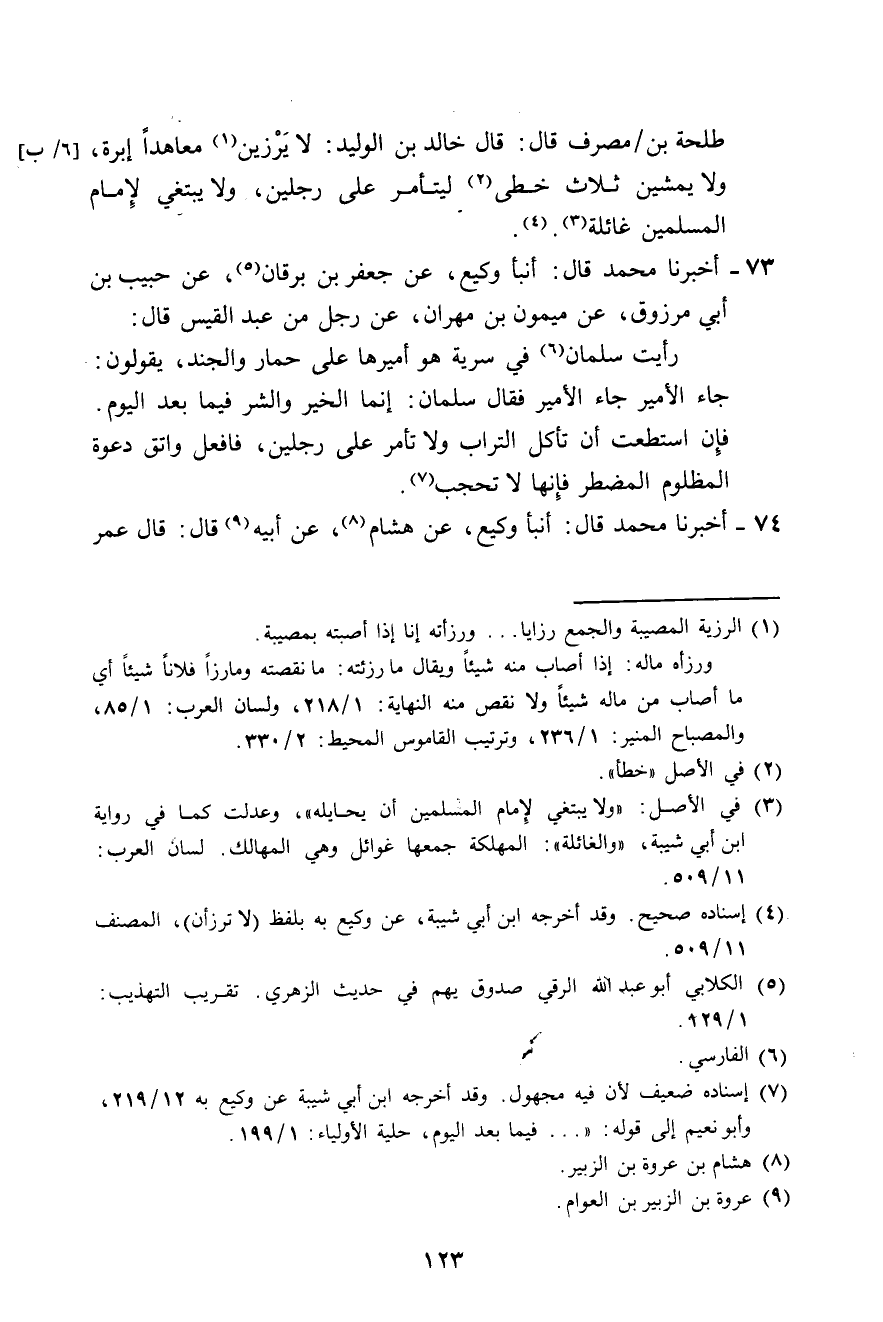 طلحة بن/مصرف قال: قال خالد بن الوليد: لا يَرْزين(١) معاهداً إبرة، [٦/ ب]
ولا يمشين ثلاث خطى(٢) ليتأمر على رجلين، ولا يبتغي لإمام
المسلمين غائلة(٣). (٤).
٧٣ - أخبرنا محمد قال: أنبأ وكيع، عن جعفر بن برقان(٥)، عن حبيب بن
أبي مرزوق، عن ميمون بن مهران، عن رجل من عبد القيس قال:
رأيت سلمان(٦) في سرية هو أميرها على حمار والجند، يقولون:
جاء الأمير جاء الأمير فقال سلمان: إنما الخير والشر فيما بعد اليوم.
فإن استطعت أن تأكل التراب ولا تأمر على رجلين، فافعل واتق دعوة
المظلوم المضطر فإنها لا تحجب(٧).
٧٤ - أخبرنا محمد قال: أنبأ وكيع، عن هشام(٨)، عن أبيه(٩) قال: قال عمر
(١) الرزية المصيبة والجمع رزايا... ورزأته إنا إذا أصبته بمصيبة.
ورزأه ماله: إذا أصاب منه شيئاً ويقال ما رزئته: ما نقصته ومارزأ فلاناً شيئاً أي
ما أصاب من ماله شيئاً ولا نقص منه النهاية: ٢١٨/١، ولسان العرب: ٨٥/١،
والمصباح المنير: ٢٣٦/١، وترتيب القاموس المحيط: ٣٣٠/٢.
(٢) في الأصل «خطأ».
(٣) في الأصل: «ولا يبتغي لإمام المسلمين أن يحايله»، وعدلت كما في رواية
ابن أبي شيبة، «والغائلة»: المهلكة جمعها غوائل وهي المهالك. لسان العرب:
٥٠٩/١١.
(٤) إسناده صحيح. وقد أخرجه ابن أبي شيبة، عن وكيع به بلفظ (لا ترزأن)، المصنف
٥٠٩/١١.
(٥) الكلابي أبو عبد الله الرقي صدوق يهم في حديث الزهري. تقريب التهذيب:
١٢٩/١.
(٦) الفارسي.
(٧) إسناده ضعيف لأن فيه مجهول. وقد أخرجه ابن أبي شيبة عن وكيع به ٢١٩/١٢،
وأبو نعيم إلى قوله: «... فيما بعد اليوم، حلية الأولياء: ١٩٩/١.
(٨) هشام بن عروة بن الزبير.
(٩) عروة بن الزبير بن العوام.
١٢٣